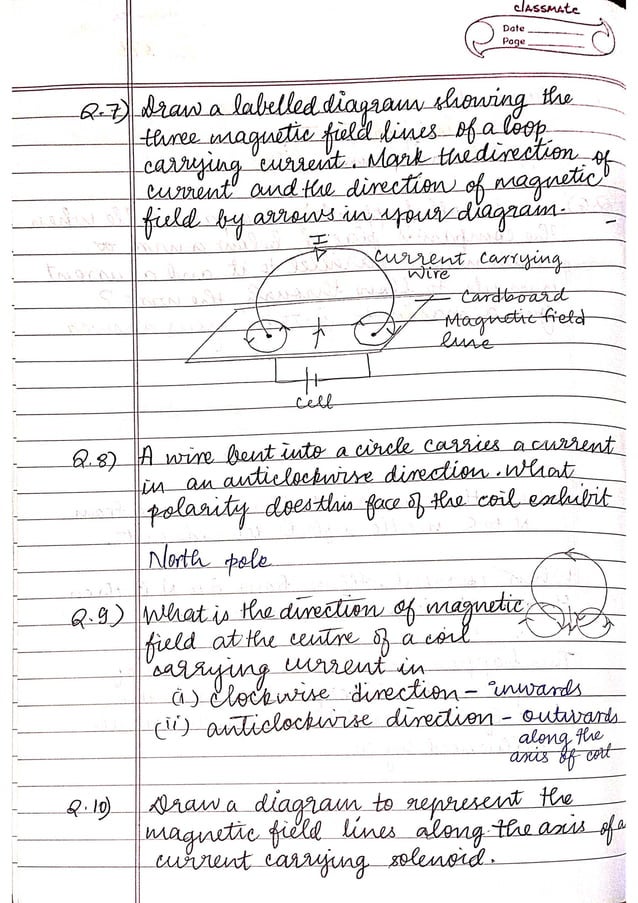 classmate
Date
Page
Q.7) Draw a labelled diagram showing the
three magnetic field lines of a loop
carrying current. Mark the direction of
current and the direction of magnetic
field by arrows in your diagram.
I
current carrying
wire
Cardboard
Magnetic field
line
Cell
Q.8) A wire bent into a circle carries a current
in an anticlockwise direction. What
polarity does this face of the coil exhibit
North pole
Q.9) What is the direction of magnetic
field at the centre of a coil
carrying current in
(i) clockwise direction - inwards
(ii) anticlockwise direction - outwards
along the
axis of coil
Q.10) Draw a diagram to represent the
magnetic field lines along the axis of a
current carrying solenoid.